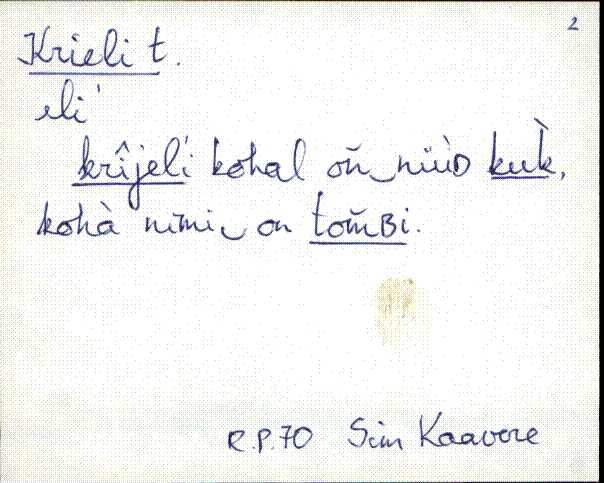 2
Krieli t.
eli'
krîjelí kohal oñ‿nüüD kuk̀,
kohà nìmi‿on tom̆Bi.
R.P.70 Sim Kaavere